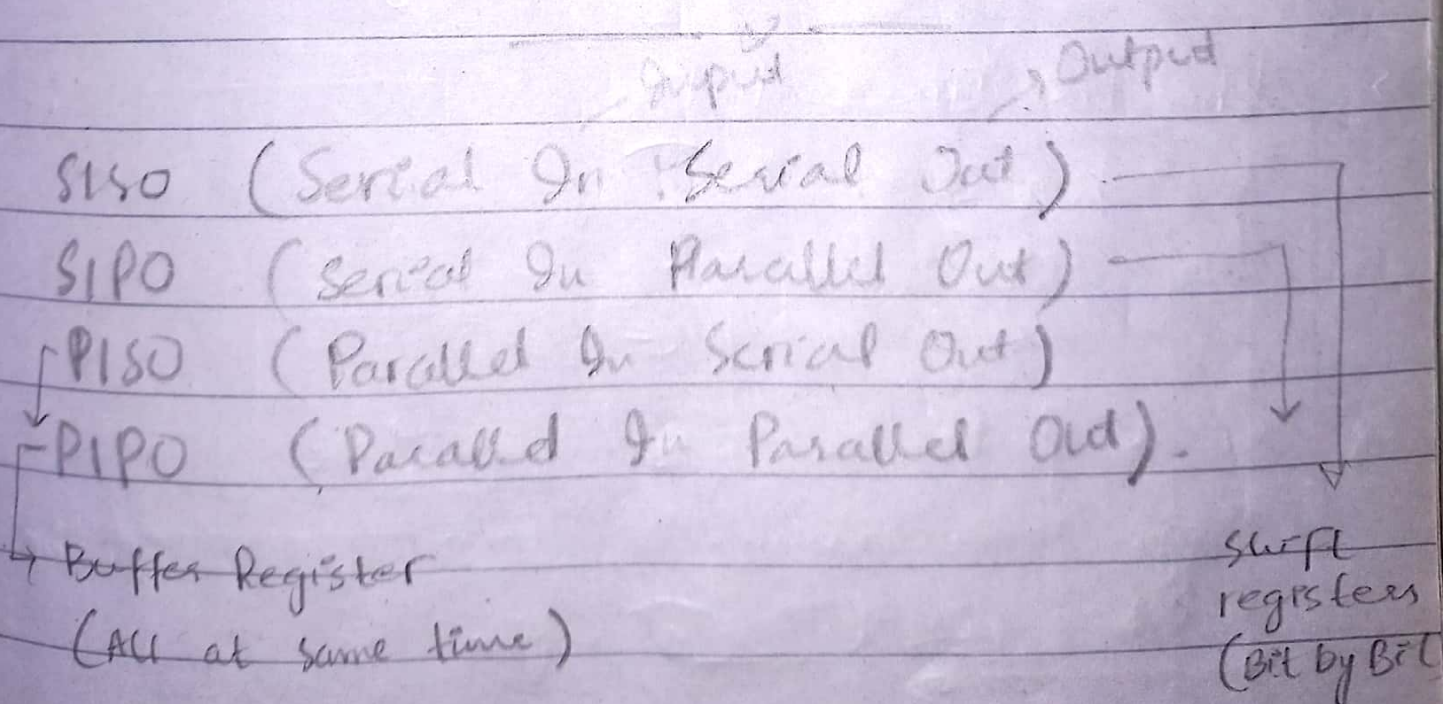 Input Output
SISO (Serial In Serial Out)
SIPO (Serial In Parallel Out)
PISO (Parallel In Serial Out)
PIPO (Parallel In Parallel Out).
Buffer Register
(All at same time)
shift
registers
(Bit by Bit